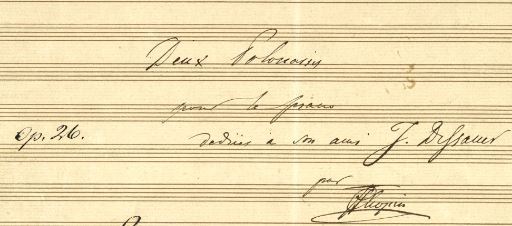 Deux Polonaises
pour le piano
Op. 26.
dediées à son ami J. Dessauer
par
FChopin